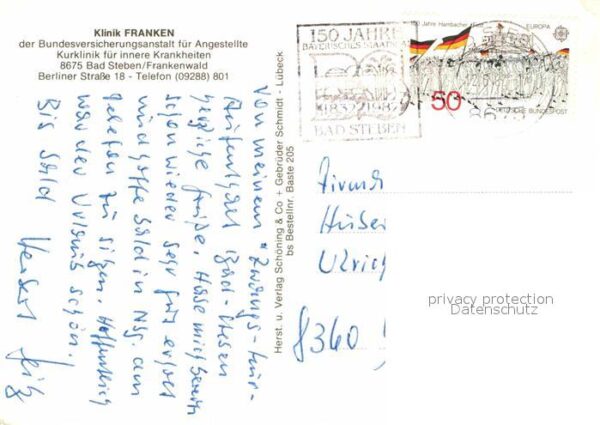 Klinik FRANKEN
der Bundesversicherungsanstalt für Angestellte
Kurklinik für innere Krankheiten
8675 Bad Steben/Frankenwald
Berliner Straße 18 - Telefon (09288) 801
150 JAHRE
BAYERISCHES STAATSBAD
1832 1982
BAD STEBEN
150 Jahre Hambacher Fest
EUROPA
50
DEUTSCHE BUNDESPOST
Von meinem "Zwangs-Kur-
Aufenthalt Bad-Steben
herzliche Grüße. Habe mich bereits
schon wieder sehr gut erholt
und hoffe bald in
zu sitzen. Hoffentlich
war der Urlaub schön.
Bis bald
Herst. u. Verlag Schöning & Co + Gebrüder Schmidt - Lübeck
bs Bestellnr. Baste 205
Firma
Huber
Ulrich
8360
privacy protection
Datenschutz